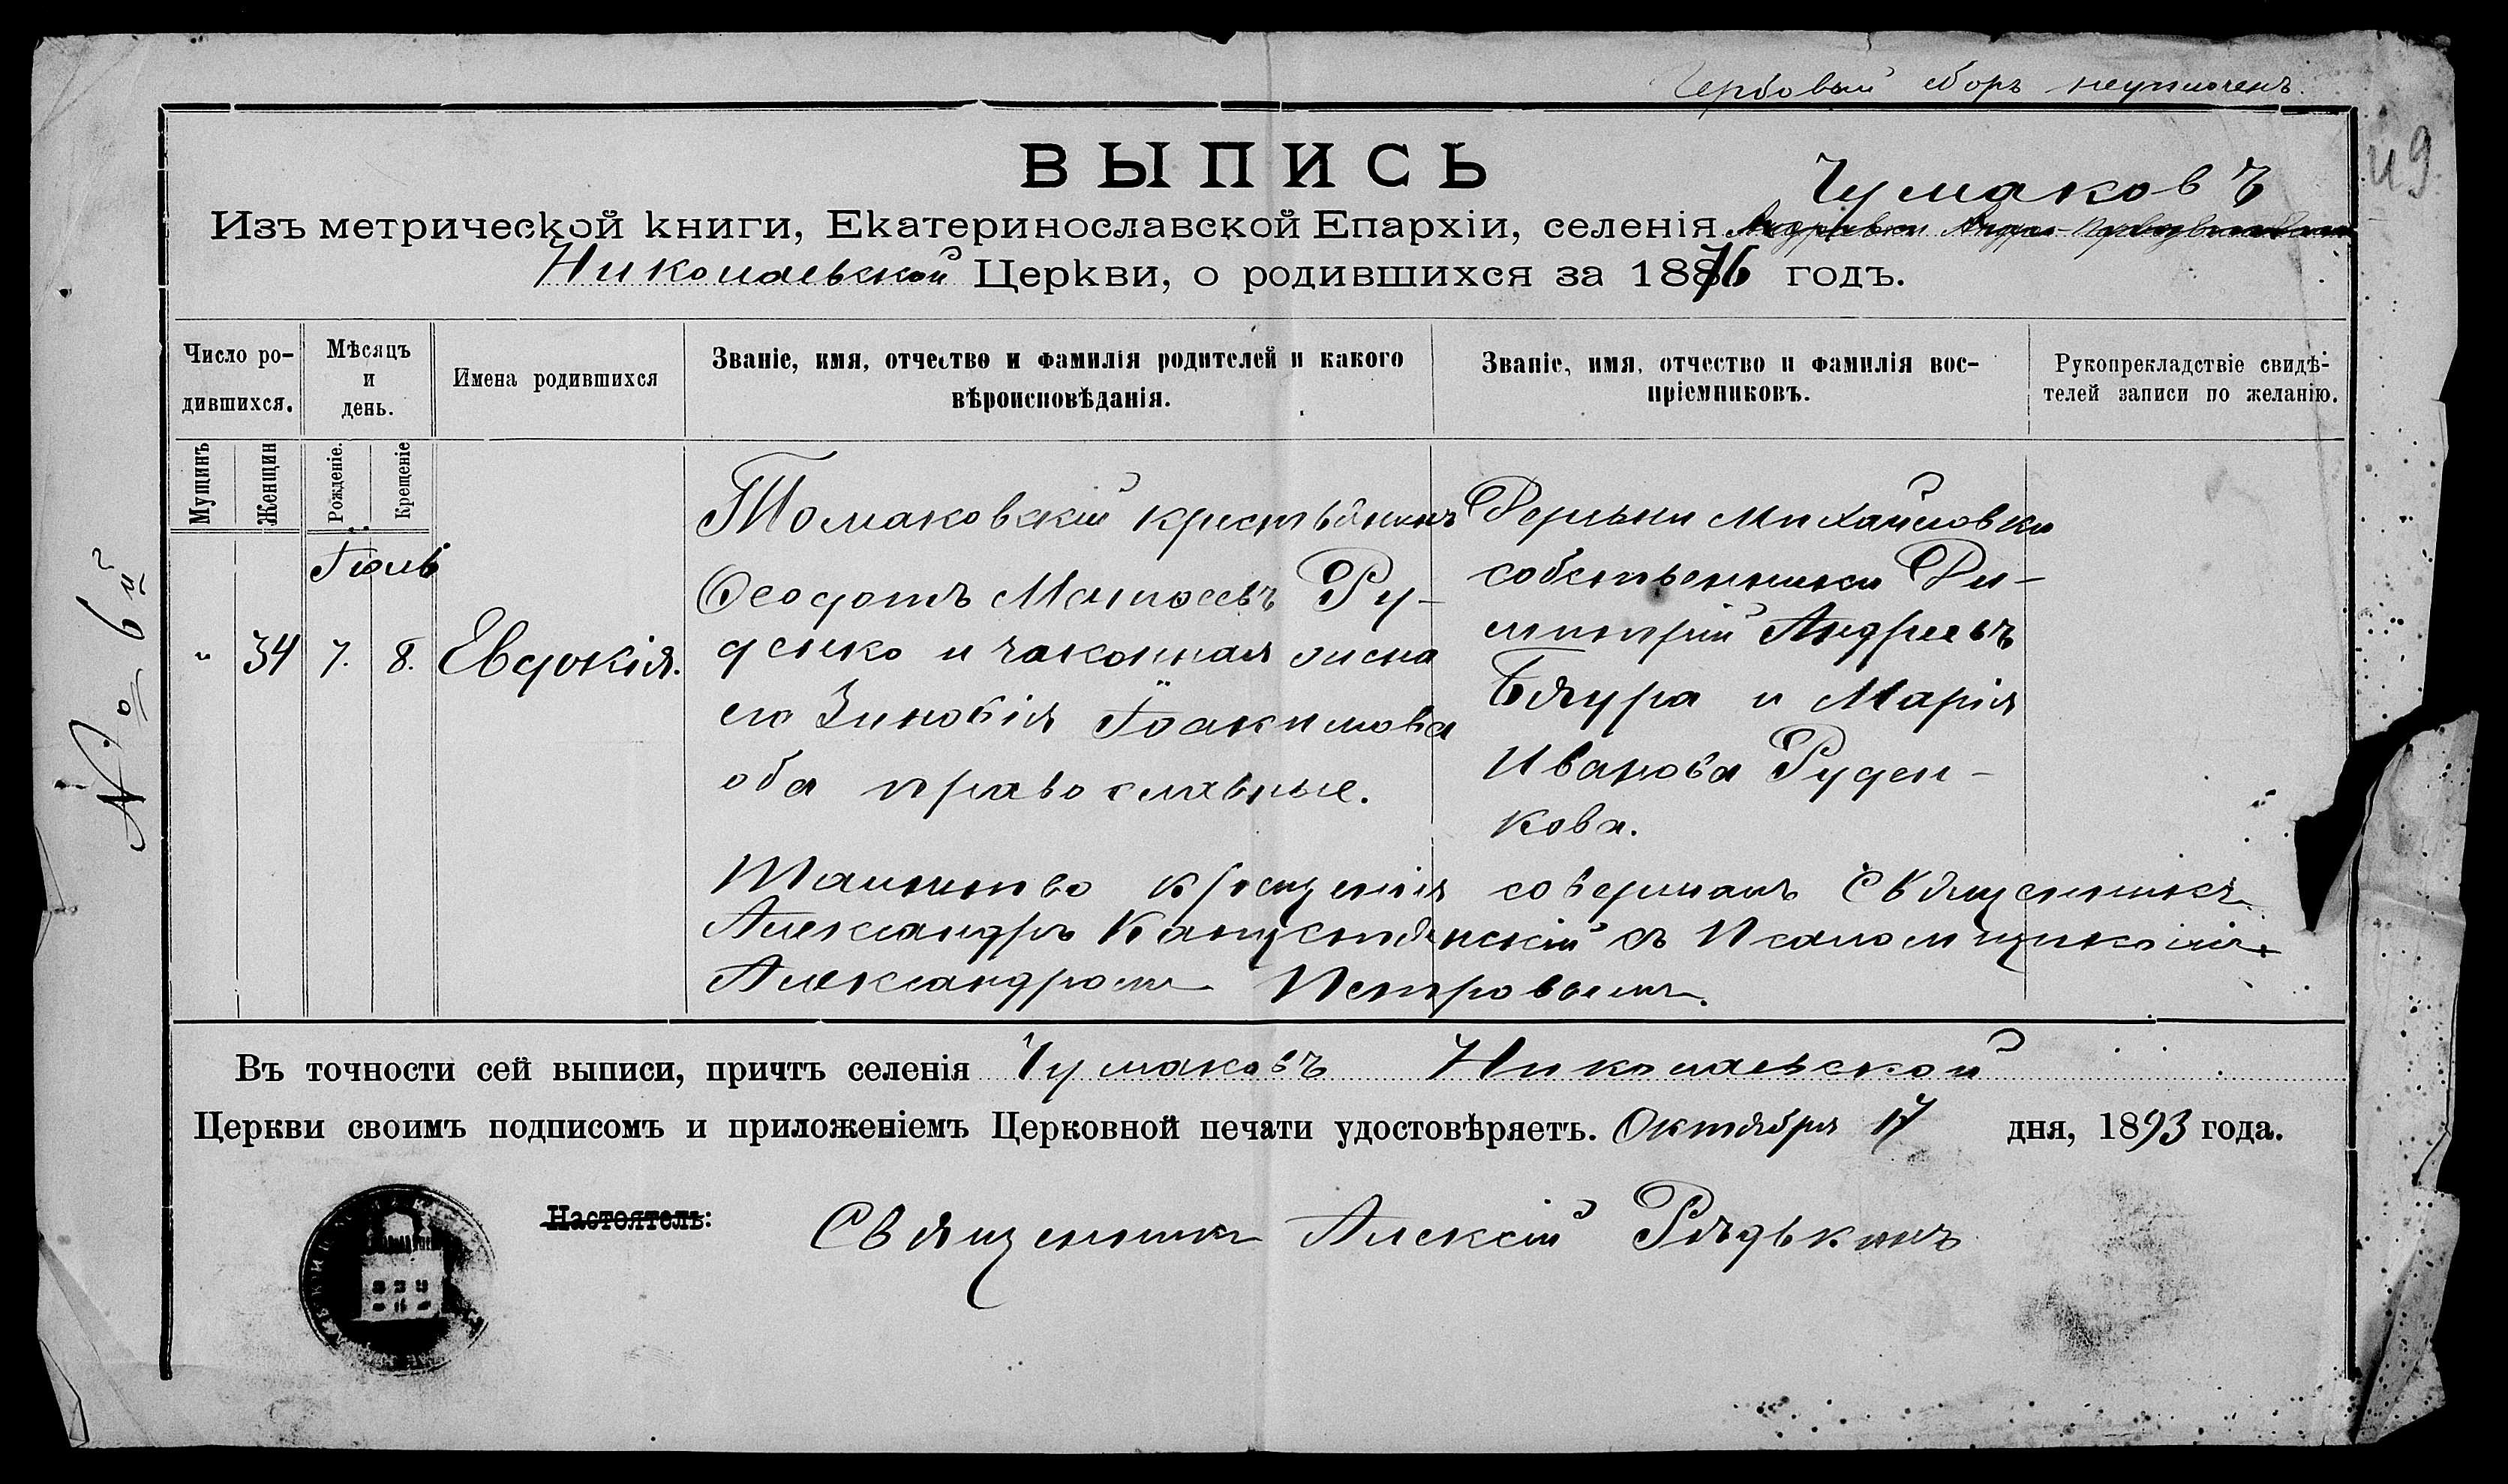 Гербовый сборъ неуплоченъ.
49
ВЫПИСЬ
Чумаковъ
Изъ метрической книги, Екатеринославской Епархіи, селенія
Николаевской Церкви, о родившихся за 1876 годъ.
Число родившихся.
Мѣсяцъ и день.
Имена родившихся
Званіе, имя, отчество и фамилія родителей и какого вѣроисповѣданія.
Званіе, имя, отчество и фамилія воспріемниковъ.
Рукоприкладствіе свидѣтелей записи по желанію.
Мущинъ
Женщин
Рожденіе.
Крещеніе
№ 6й
Іюль
" 34 7. 8. Евдокія.
Томаковскій крестьянинъ
Ѳеодотъ Моисеевъ Ру-
денко и законная жена
его Зиновія Іоакимова
оба православные.
Деревни Михайловки
собственники Ди-
митрій Андреевъ
Бѣгура и Марія
Иванова Руден-
кова.
Таинство крещенія совершалъ Священникъ
Александръ съ Псаломщикомъ
Александромъ Петровымъ.
Въ точности сей выписи, причтъ селенія Чумаковъ Николаевской
Церкви своимъ подписомъ и приложеніемъ Церковной печати удостовѣряетъ. Октября 17 дня, 1893 года.
Настоятель: Священникъ Алексій Рѣдькинъ